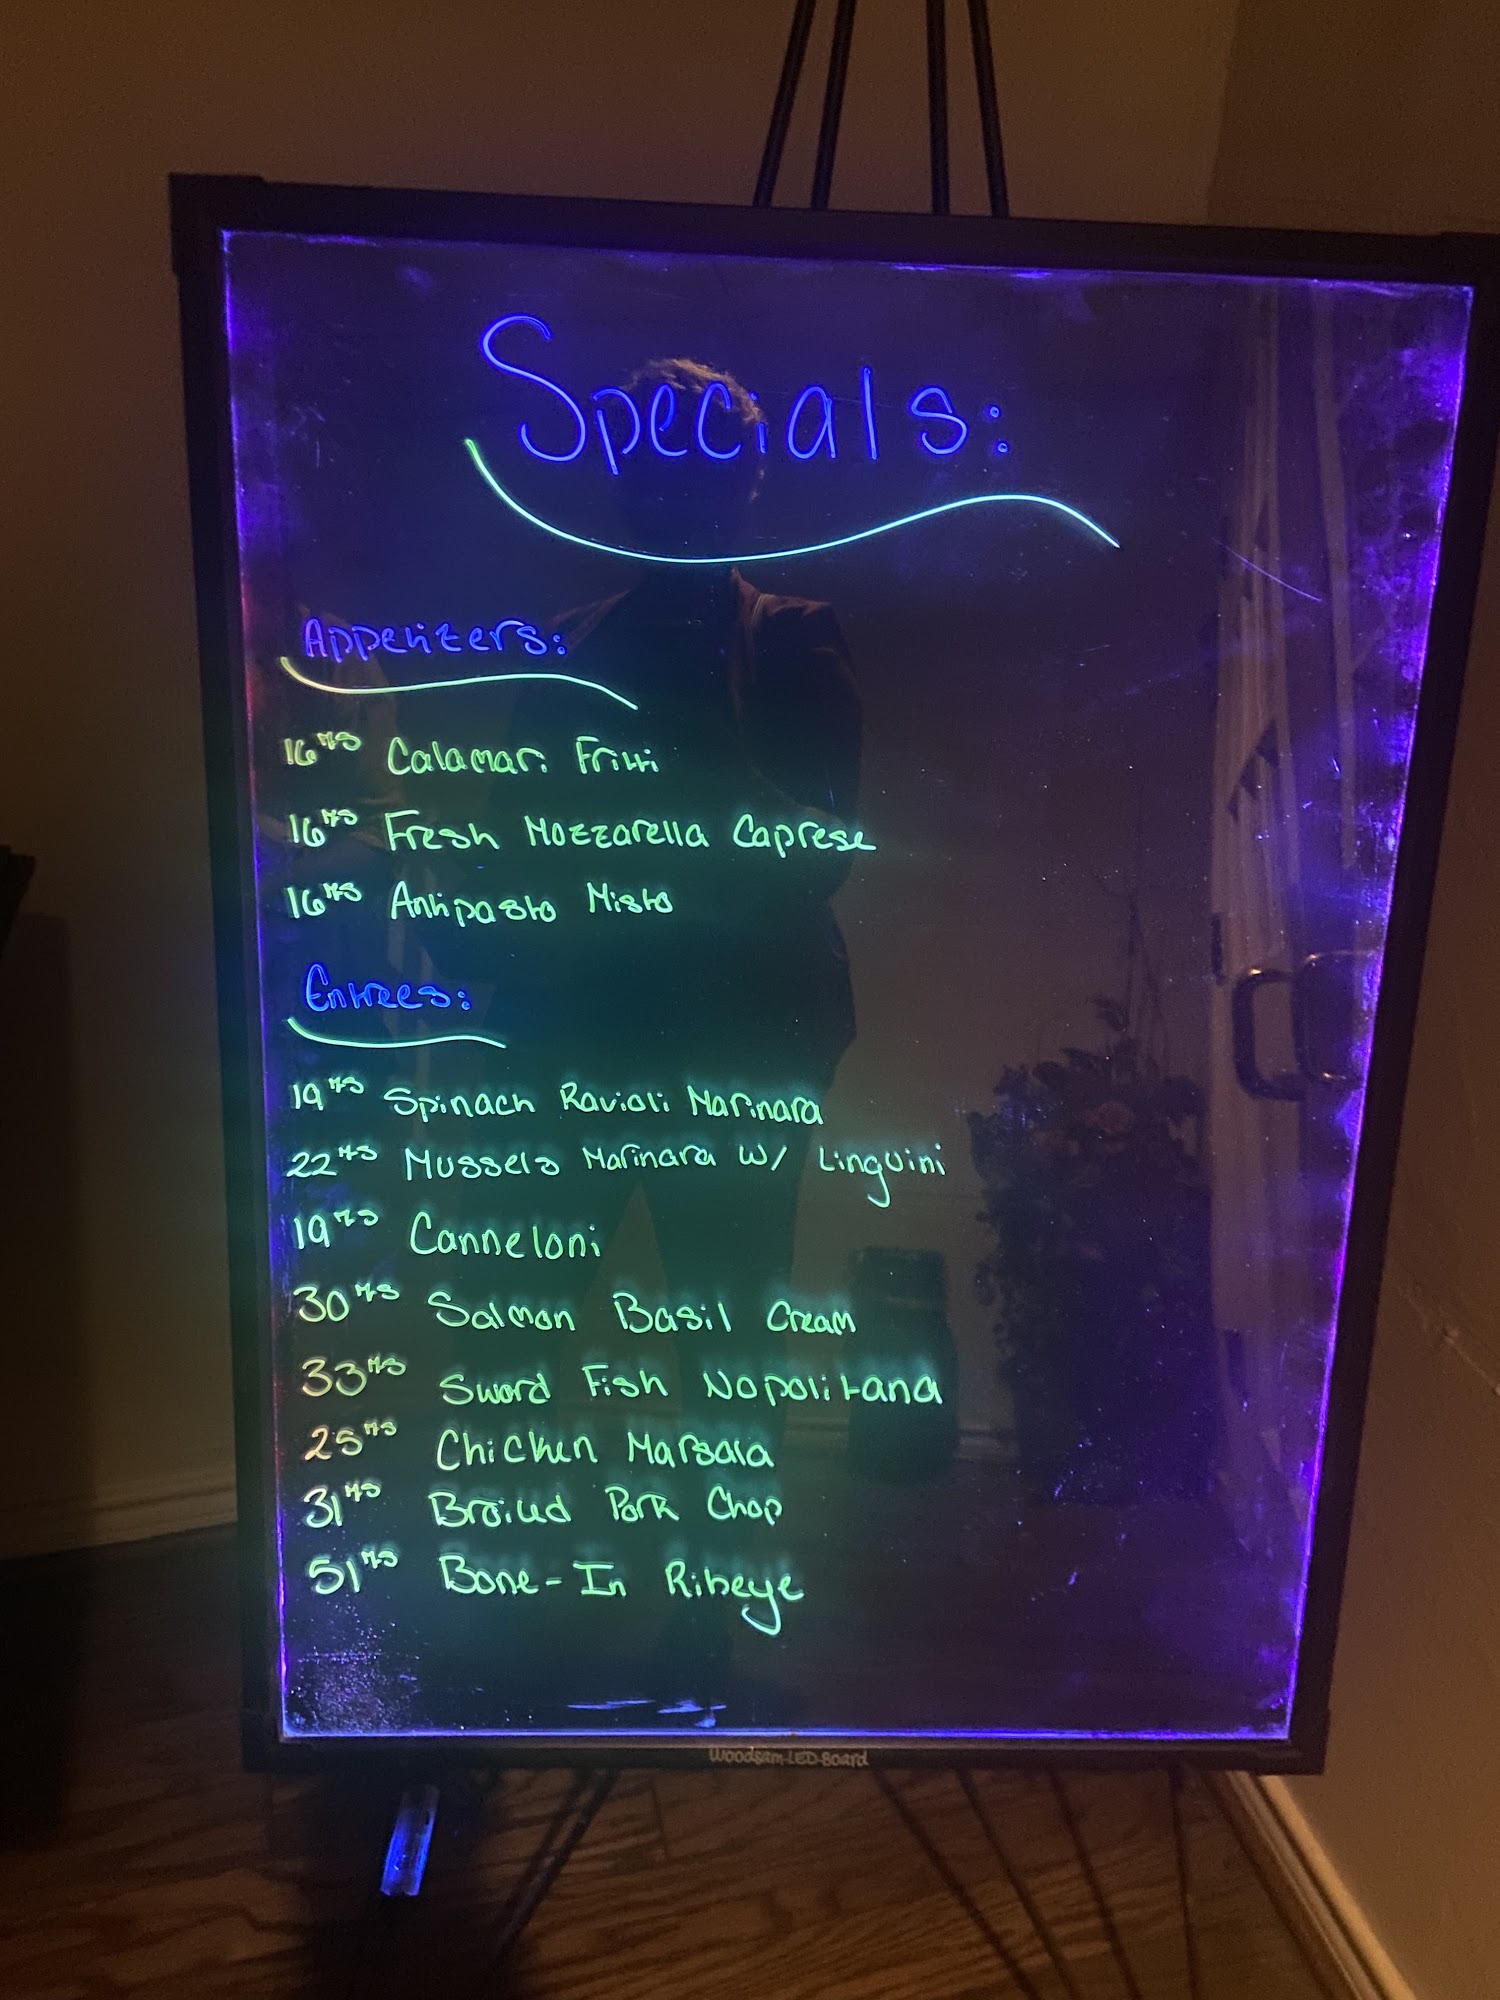 Specials:
Appetizers:
16⁷⁵ Calamari Fritti
16⁷⁵ Fresh Mozzarella Caprese
16⁷⁵ Antipasto Misto
Entrees:
19⁷⁵ Spinach Ravioli Marinara
22⁷⁵ Mussels Marinara w/ Linguini
19⁷⁵ Canneloni
30⁷⁵ Salmon Basil Cream
33⁷⁵ Sword Fish Nopolitana
25⁷⁵ Chicken Marsala
31⁷⁵ Broiled Pork Chop
51⁷⁵ Bone-In Ribeye
Woodsam-LED-Board